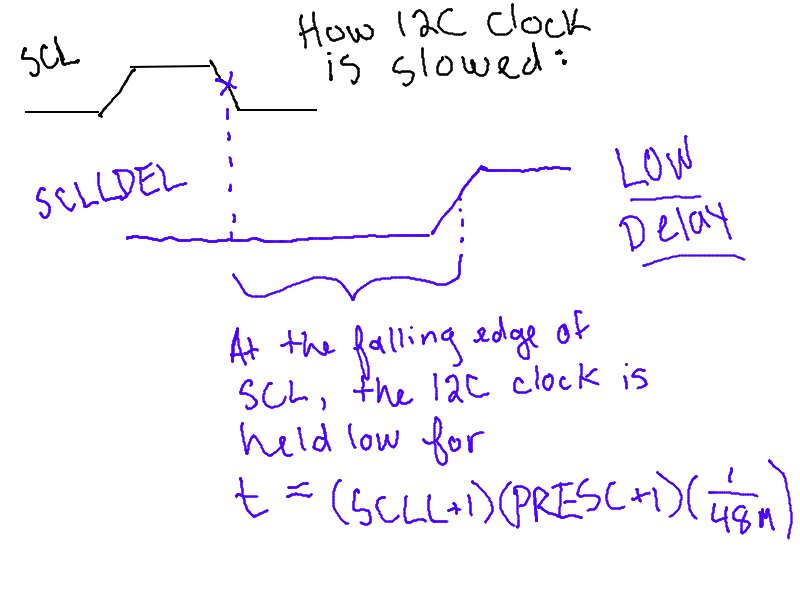 How I2C clock
is slowed:
SCL
SCLLDEL
LOW
Delay
At the falling edge of
SCL, the I2C clock is
held low for
t = (SCLL+1)(PRESC+1)(1/48M)